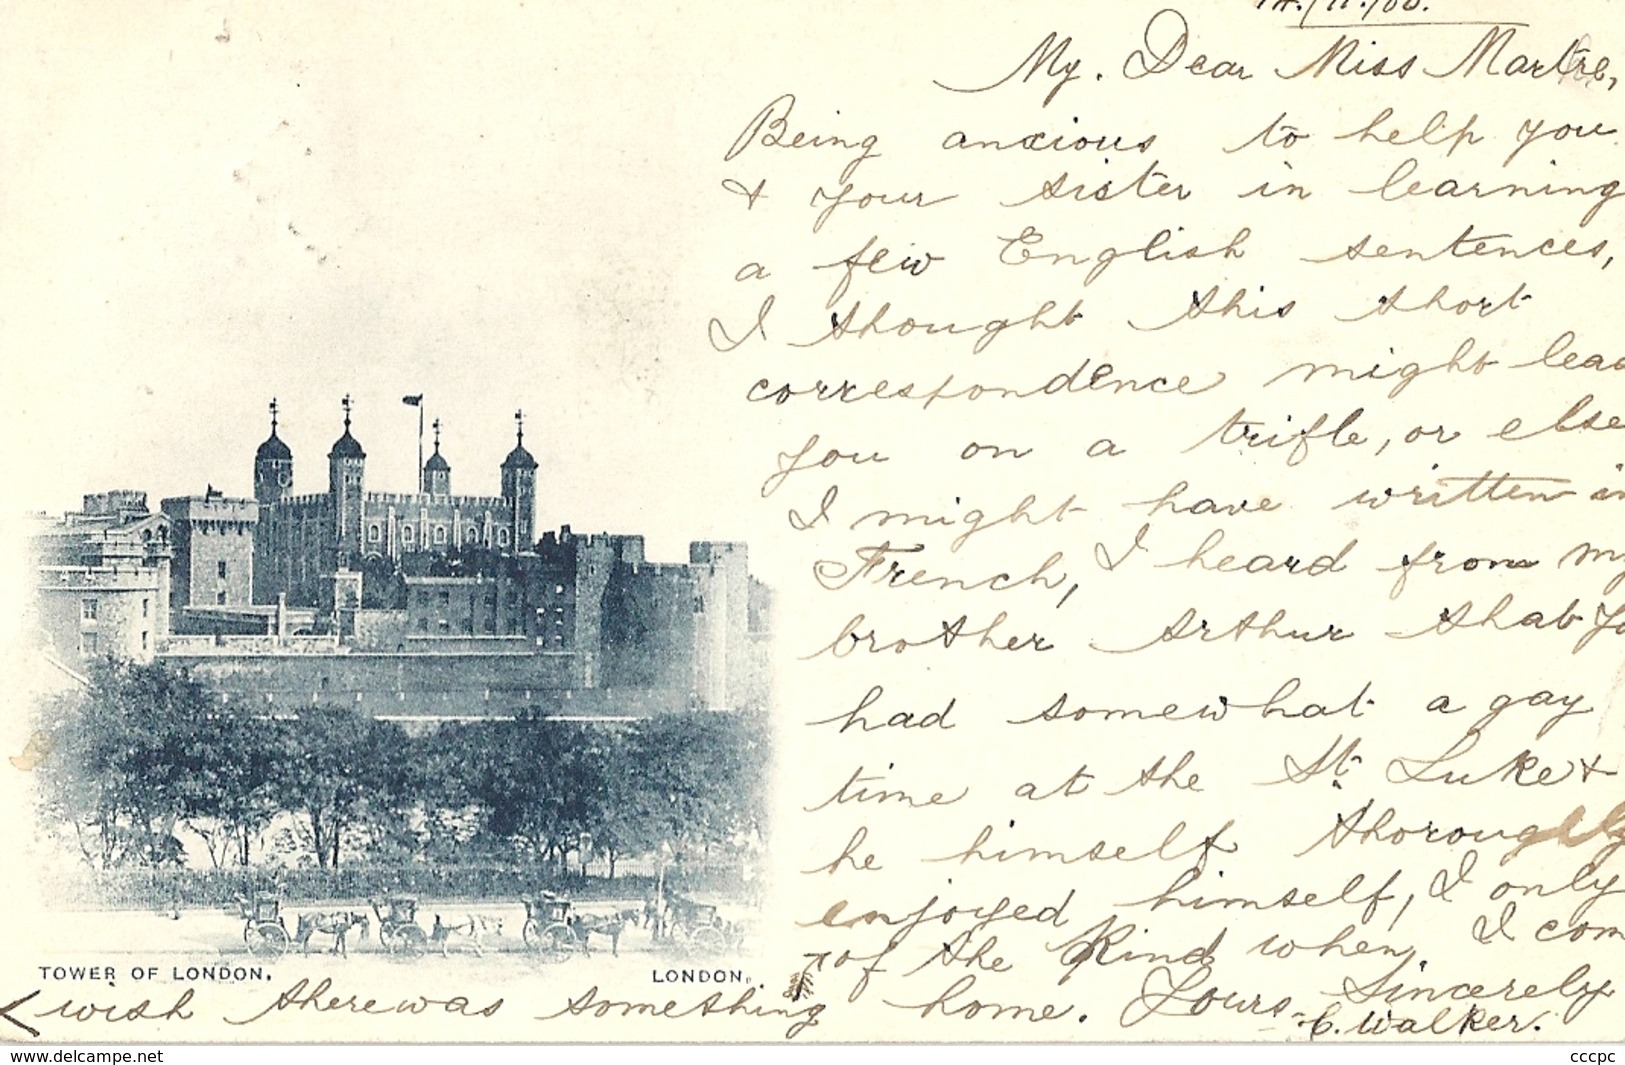 14./11./00.
My. Dear Miss Martre,
Being anxious to help you
& your sister in learning
a few English sentences,
I thought this short
correspondence might lead
you on a trifle, or else
I might have written in
French, I heard from my
brother Arthur that yo
had somewhat a gay
time at the St. Luke &
he himself thoroughly
enjoyed himself, I only
< wish there was something
of the kind when I com
home. Yours Sincerely
C. Walker.
TOWER OF LONDON,
LONDON.
www.delcampe.net
cccpc